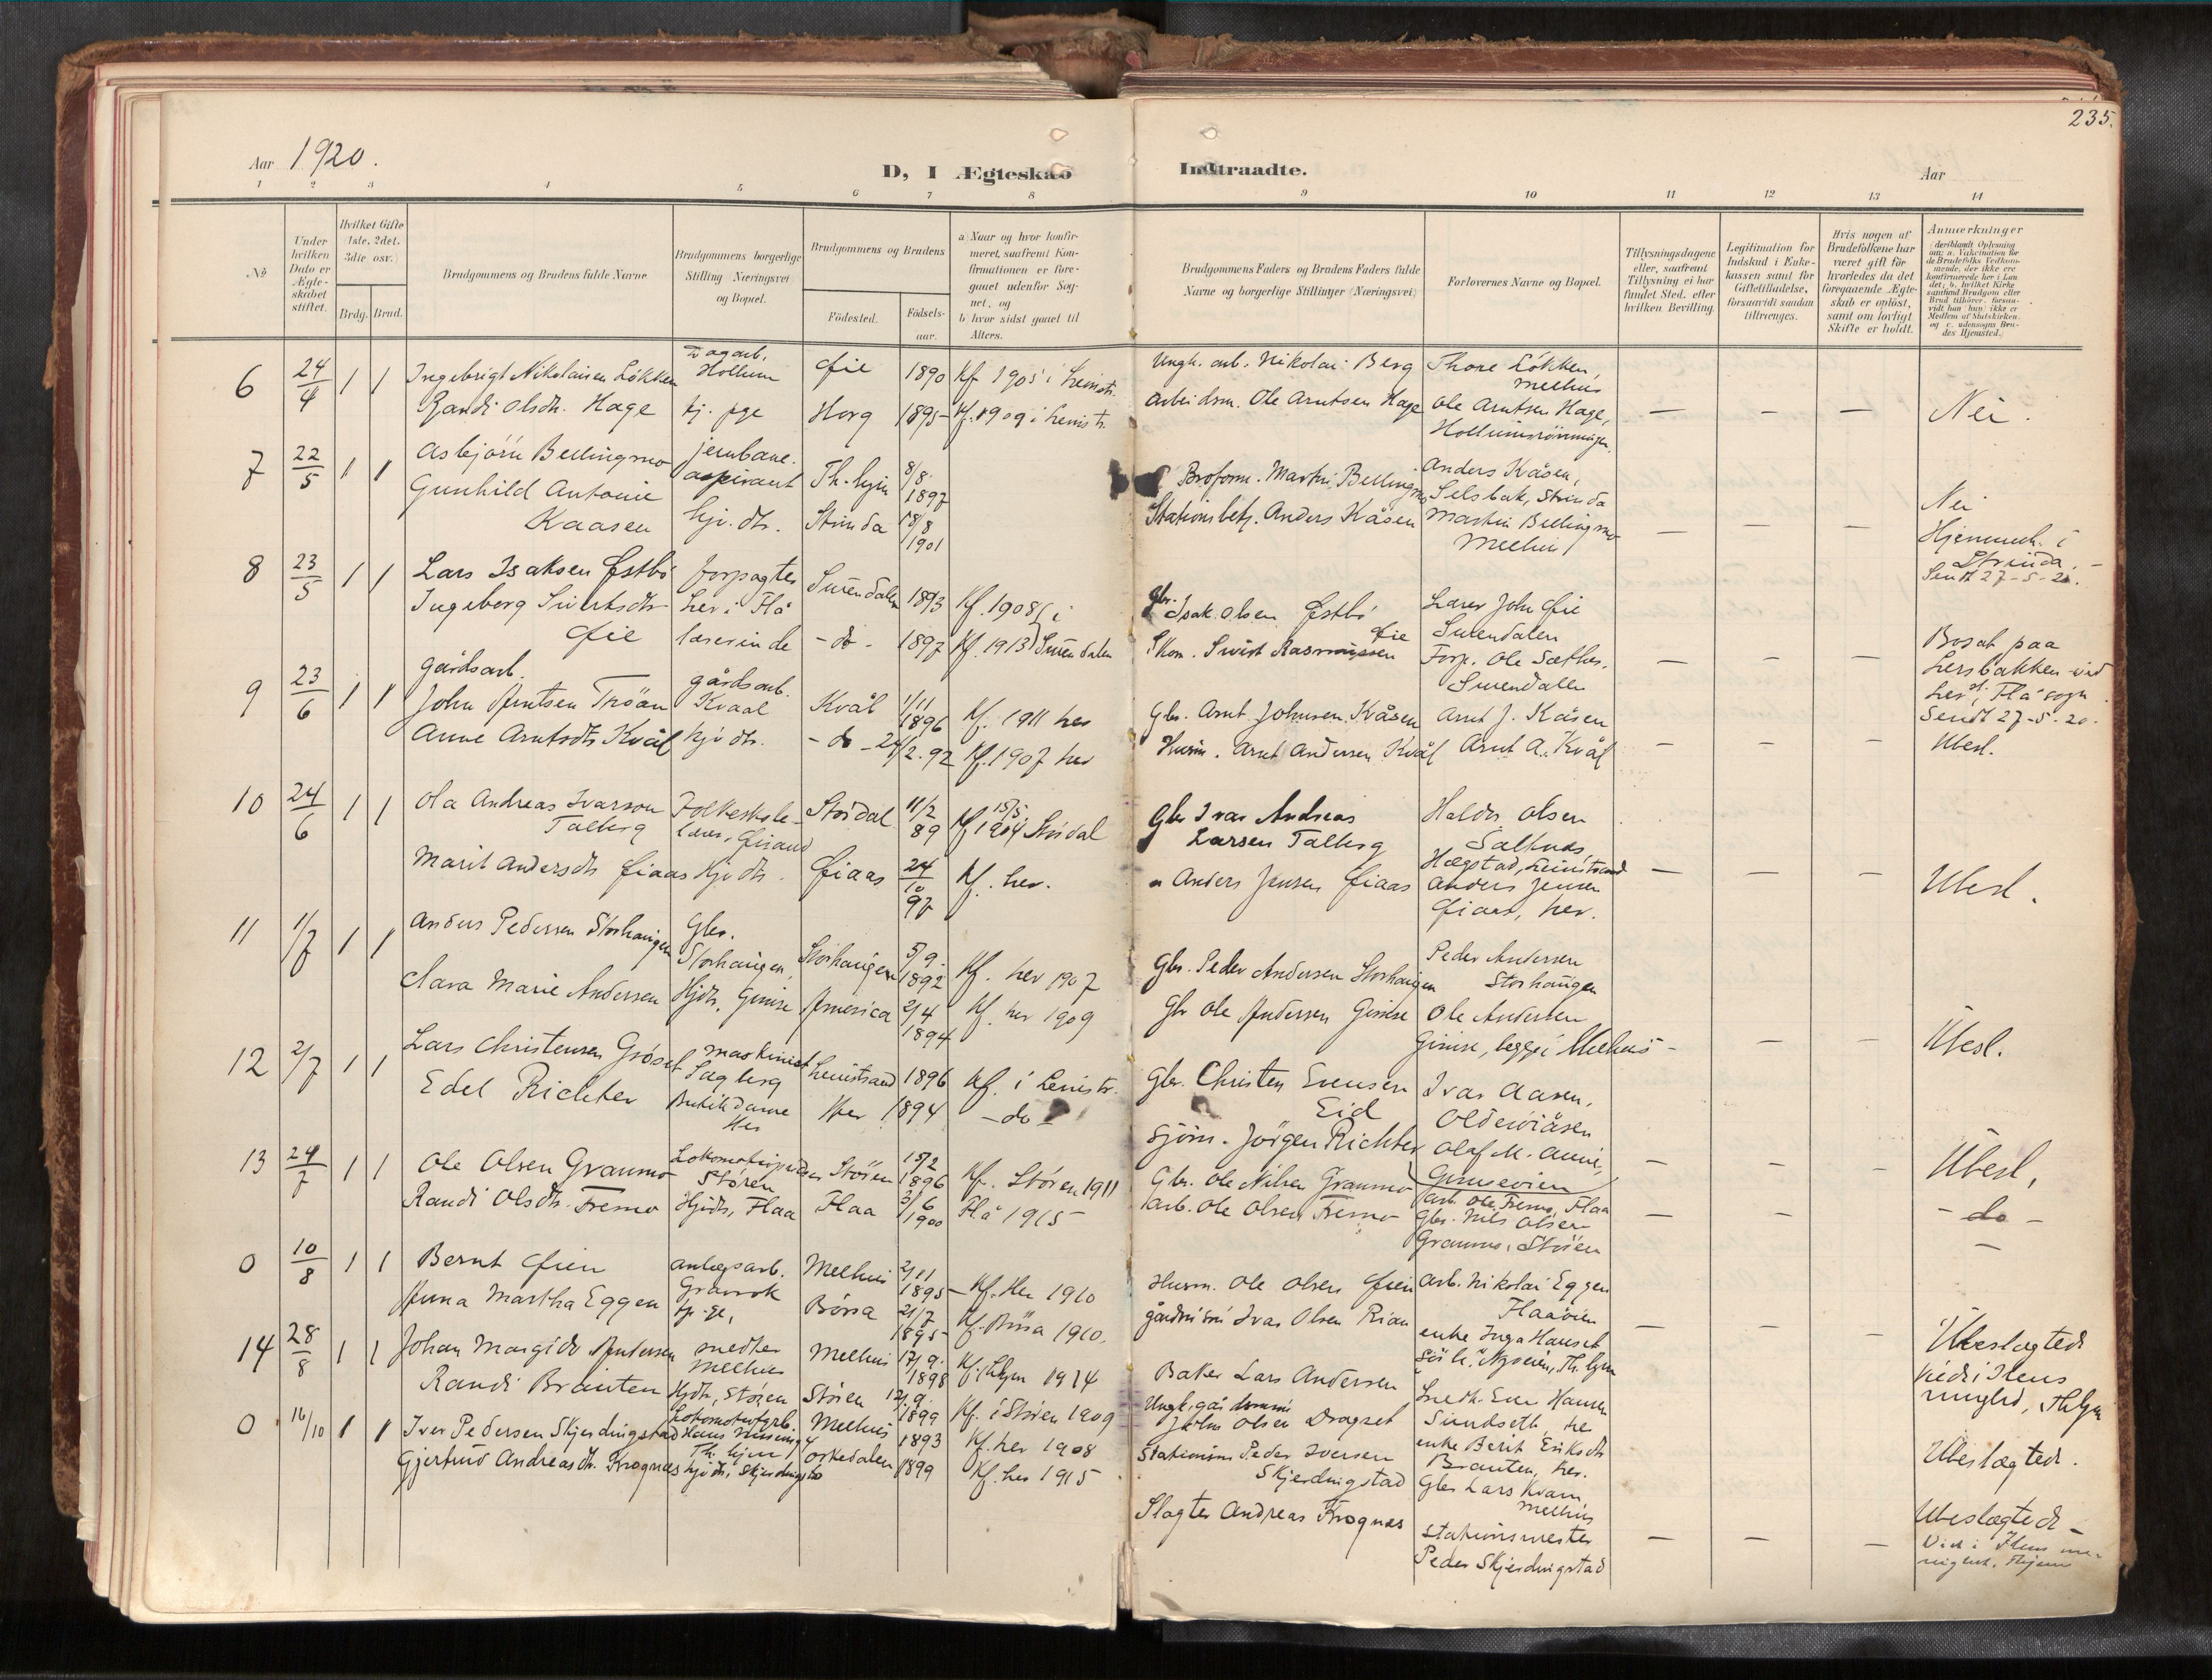 235.
Aar 1920.
D, I Ægteskab Indtraadte.
Aar
1 2 3 4 5 6 7 8 9 10 11 12 13 14
No.
Under hvilken Dato er Ægteskabet stiftet.
Hvilket Gifte (1ste, 2det, 3die osv.)
Brdg. Brud.
Brudgommens og Brudens fulde Navne
Brudgommens borgerlige Stilling (Næringsvei) og Bopæl.
Brudgommens og Brudens
Fødested.
Fødselsaar.
a) Naar og hvor konfirmeret, saafremt Konfirmationen er foregaaet udenfor Sognet, og
b) hvor sidst gaaet til Alters.
Brudgommens Faders og Brudens Faders fulde Navne og borgerlige Stillinger (Næringsvei)
Forlovernes Navne og Bopæl.
Tillysningsdagene eller, saafremt Tillysning ei har fundet Sted, efter hvilken Bevilling.
Legitimation for Indskud i Enkekassen samt for Giftetilladelse, forsaavidt saadan tiltrænges.
Hvis nogen af Brudefolkene har været gift før hvorledes da det foregaaende Ægteskab er opløst, samt om lovligt Skifte er holdt.
Anmærkninger
(deriblandt Oplysning om: a. Vakcination for de Brudefolks Vedkommende, der ikke ere konfirmerede her i Landet; b. hvilket Kirkesamfund Brudgom eller Brud tilhører, forsaavidt han (hun) ikke er Medlem af Statskirken, og c. udensogns Brudes Hjemsted.)
6 24/4 1 1 Ingebrigt Nikolaisen Løkken Dagarb. Hollum Øie 1890 Kf 1905 i Leinstr. Ungk. arb. Nikolai Berg Thore Løkken, Melhus
Randi Olsdt. Hage tj. pge Horg 1895 Kf. 1909 i Leinstr. Arbeidsm. Ole Arntsen Hage Ole Arntsen Hage, — — — Nei.
7 22/5 1 1 Asbjørn Bellingmo jernbaneaspirant Th.hjem 8/8 1897 Broform. Martin Bellingmo Anders Kåsen, Selsbak, Strinda
Gunhild Antonie Kaasen hjv. dt. Strinda 18/8 1901 Stationsbetj. Anders Kåsen Martin Bellingmo Melhus — — — Nei
Hjemmeh. i Strinda. Sendt 27-5-20.
8 23/5 1 1 Lars Isaksen Østbø forpagter Ler i Flå Surendalen 1893 Kf. 1908 i Gbr. Isak Olsen Østbø Lærer John Øie Surendalen
Ingeborg Sivertsdtr Øie lærerinde - do - 1897 Kf. 1913 Surendalen Skom. Sivert Rasmussen Øie Forp. Ole Sæther, Surendalen — — — Bosat paa Lersbakken ved Ler st. Flå sogn
Sendt 27-5-20.
9 23/6 1 1 gårdsarb. John Arntsen Trøan gårdsarb. Kvaal Kvål 1/11 1896 Kf. 1911 her Gbr. Arnt Johnsen Kvåsen Arnt J. Kåsen
Anne Arntsdtr Kvål hjv dtr. - do - 24/2.92 Kf. 1907 her Husm. Arnt Andersen Kvål Arnt A. Kvål — — — Ubesl.
10 24/6 1 1 Ola Andreas Ivarson Talberg Folkeskolelærer, Stördal 11/2 89 Kf 15/5 1904 Stördal Gbr Ivar Andreas Larsen Talberg Haldor Olsen Saltnes
Hægstad, Leinstrand
Marit Andersdtr Øiaas Hjv dtr. Øiaas 24/10 97 Kf. her. " Anders Jensen Øiaas Anders Jensen Øiaas, her. — — — Ubesl.
11 1/7 1 1 Anders Pedersen Storhaugen Gbr. Storhaugen, Storhaugen 5/9. 1892 Kf. her 1907 Gbr. Peder Andersen Storhaugen Peder Andersen Storhaugen
Clara Marie Andersen Hjdtr, Gimse America 2/4 1894 Kf. her 1909 Gbr Ole Andersen Gimse Ole Andersen Gimse, begge i Melhus — — — Ubesl.
12 2/7 1 1 Lars Christensen Grøset maskinist Sagberg Leinstrand 1896 Kf. i Leinstr. Gbr. Christen Evensen Eid Ivar Aasen,
Edel Richter Butikdame Her Her 1894 - do - Sjöm. Jörgen Richter Olaf M. — — — Ubesl,
13 24/7 1 1 Ole Olsen Granmo Stören Stören 15/2 1896 Kf. Stören 1911 Gbr. Ole Nilsen Granmo arb. Ole Fremo, Flaa
Randi Olsdtr. Fremo Hjdtr, Flaa Flaa 3/6 1900 Flå 1915 arb. Ole Olsen Fremo Gbr. Nils Olsen Granmo, Stören — — — - do -
0 10/8 1 1 Bernt Øien anlægsarb. Melhus 2/11 1895 Kf. Her 1910 Husm. Ole Olsen Øien arb. Nikolai Eggen Flaaöien
Anna Martha Eggen tj. pge, Börsa 21/7 1895 Kf. Börsa 1910. Ivar Olsen Rian enke Inga Hauset — — — Ubeslægtede
Viede i Ilens menighed, Thhjem
14 28/8 1 1 Johan Margido Andersen smed Melhus Melhus 17/9. 1898 Kf. Thhjem 1914 Baker Lars Andersen Smedm. Hansen Sundseth, her
Randi Bräuten Hjdtr, Stören Stören 12/9. 1899 Kf. i Stören 1909 Ungk. John Olsen Dragset enke Berit Eriksdtr Brauten, her. Ubeslægtede.
0 16/10 1 1 Iver Pedersen Skjerdingstad Lokomotivfyrb. Th.hjem Melhus 1893 Kf. her 1908 Stationsm. Peder Iversen Skjerdingstad Gbr Lars Kvam Melhus
Gjertrud Andreasdtr. Krognæs hjv dtr, Skjerdingstad Orkedalen 1899 Kf. her 1915 Slagter Andreas Krognæs Stationsmester Peder Skjerdingstad — — — Ubeslægtede -
Viet i Ilens menighed. Thjem